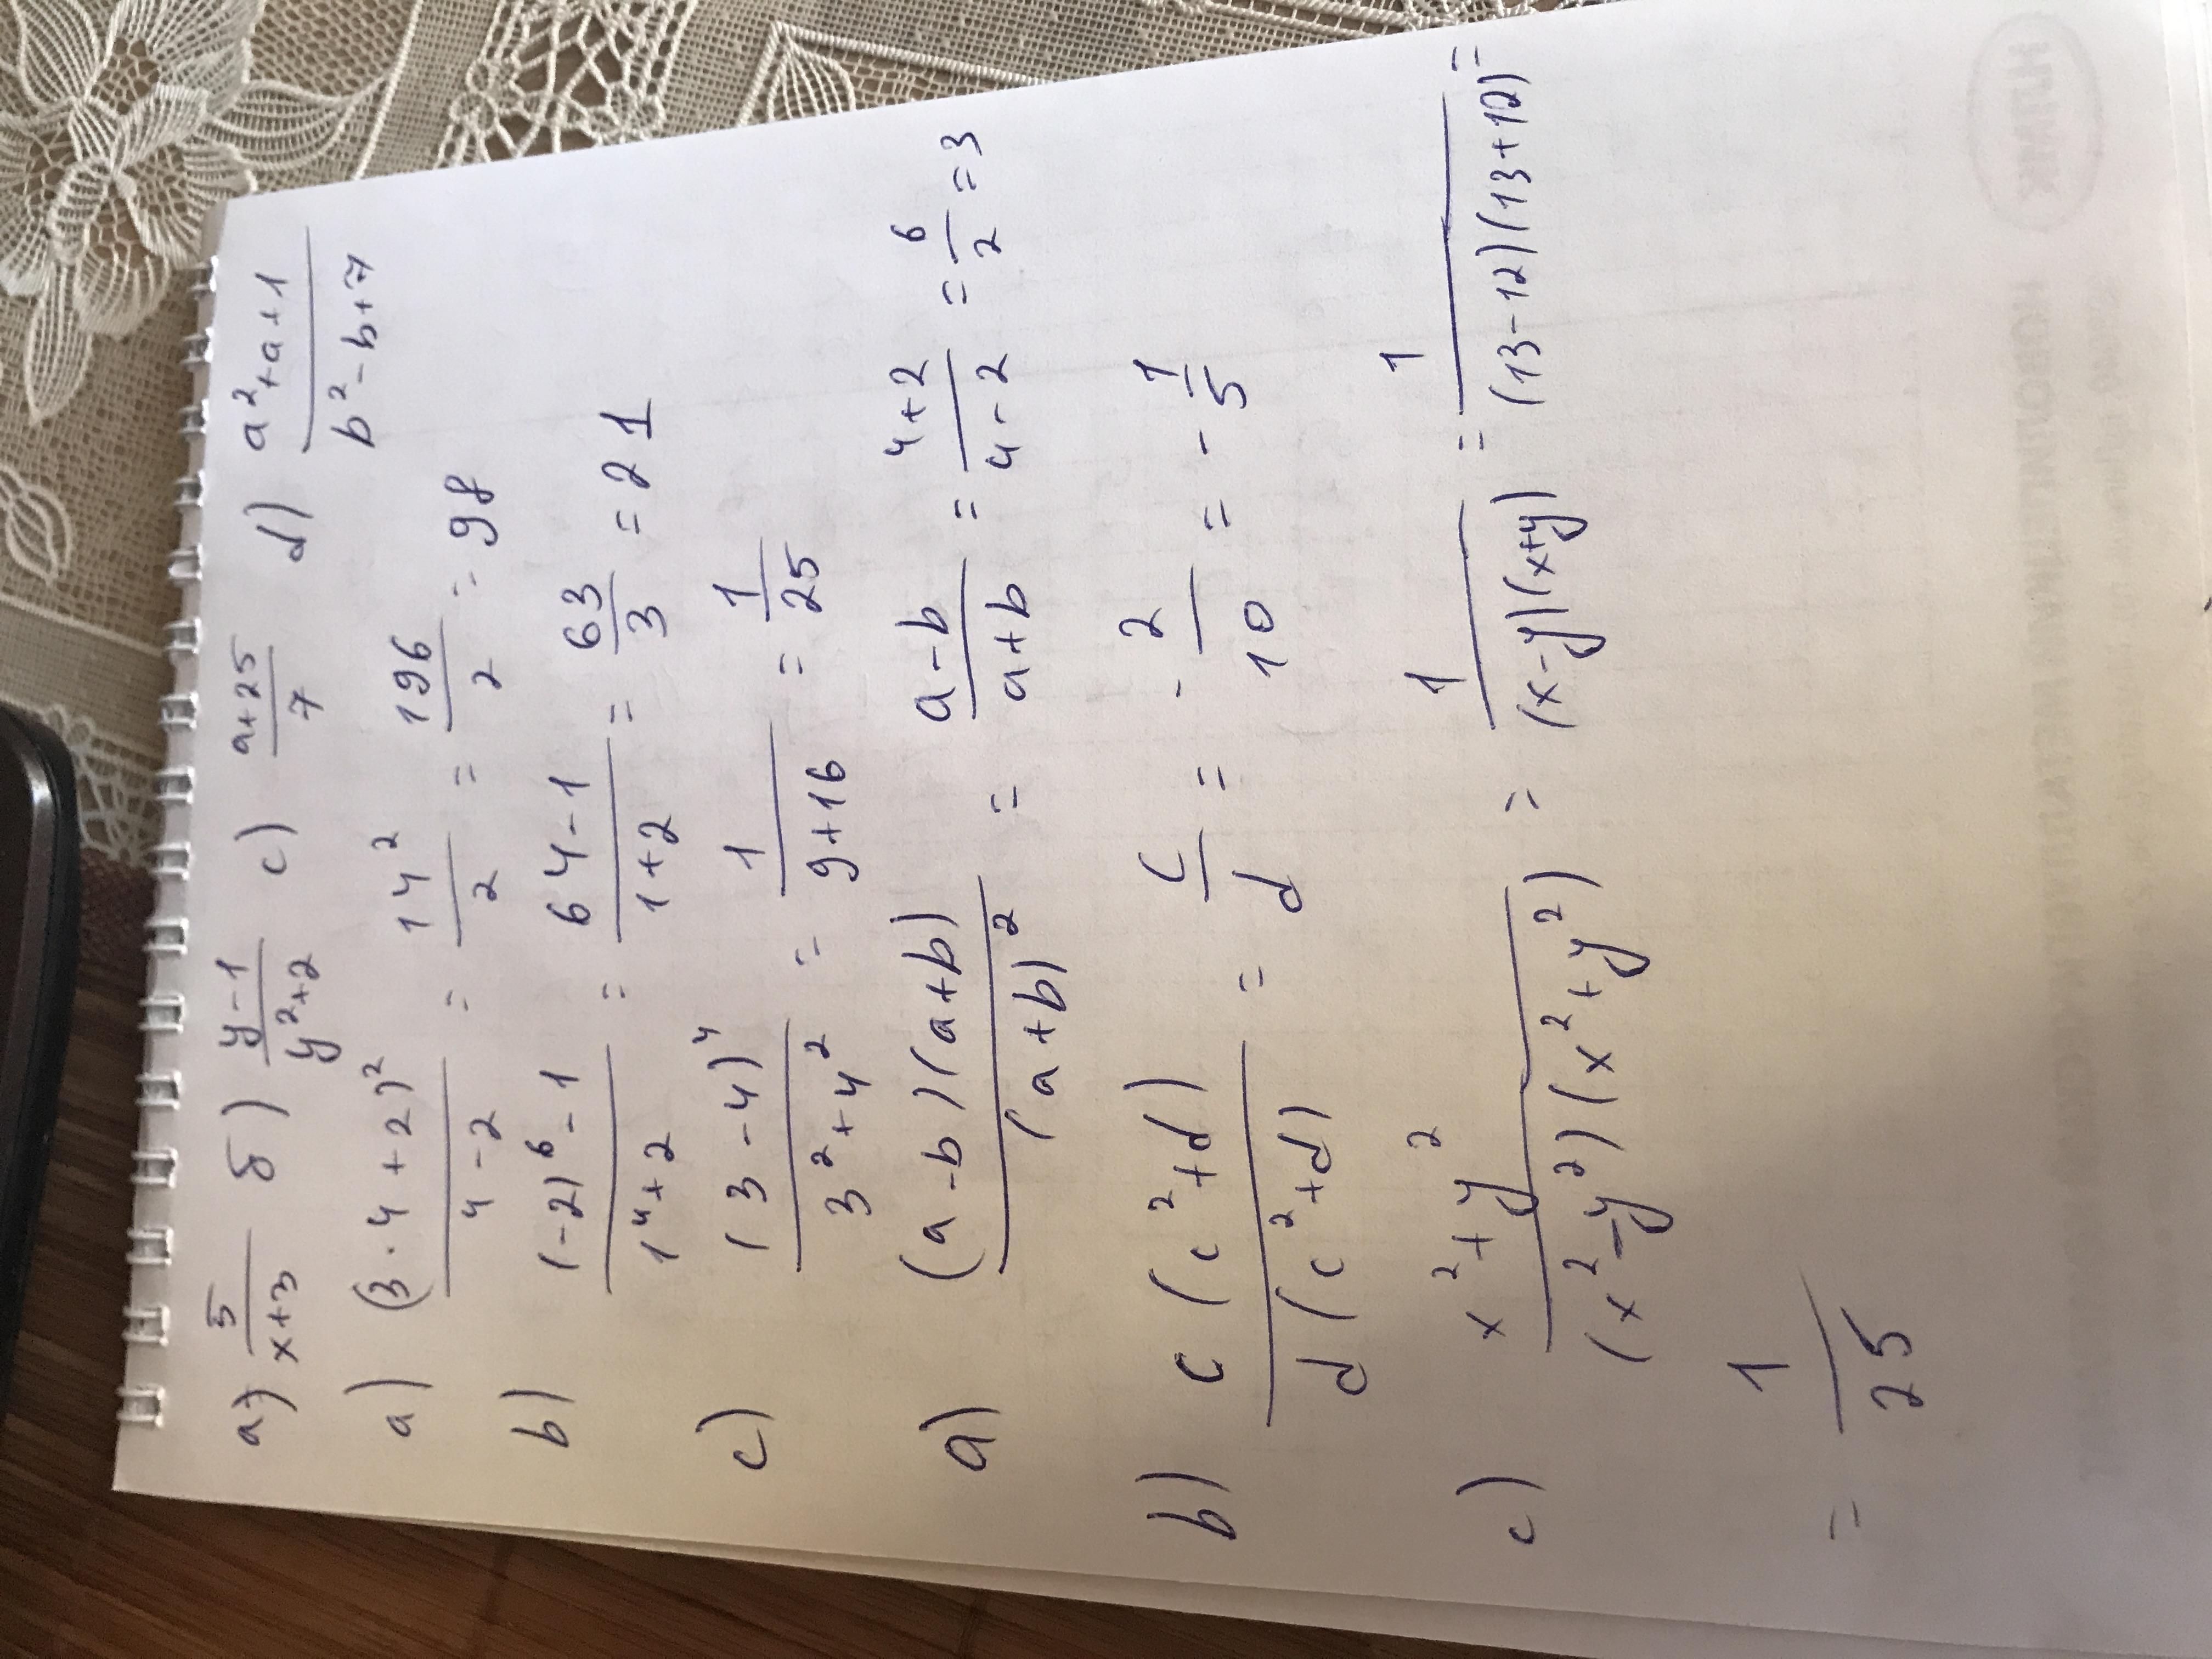 а) 5/(x+3) б) (y-1)/(y²+2) c) (a+25)/7 d) (a²+a+1)/(b²-b+7)
a) (3·4+2)²/(4-2) = 14²/2 = 196/2 = 98
b) ((-2)⁶-1)/(1⁴+2) = (64-1)/(1+2) = 63/3 = 21
c) (3-4)⁴/(3²+4²) = 1/(9+16) = 1/25
a) (a-b)(a+b)/(a+b)² = (a-b)/(a+b) = (4+2)/(4-2) = 6/2 = 3
b) c(c²+d)/d(c²+d) = c/d = -2/10 = -1/5
c) (x²+y²)/(x²-y²)(x²+y²) = 1/(x-y)(x+y) = 1/(13-12)(13+12) =
= 1/25